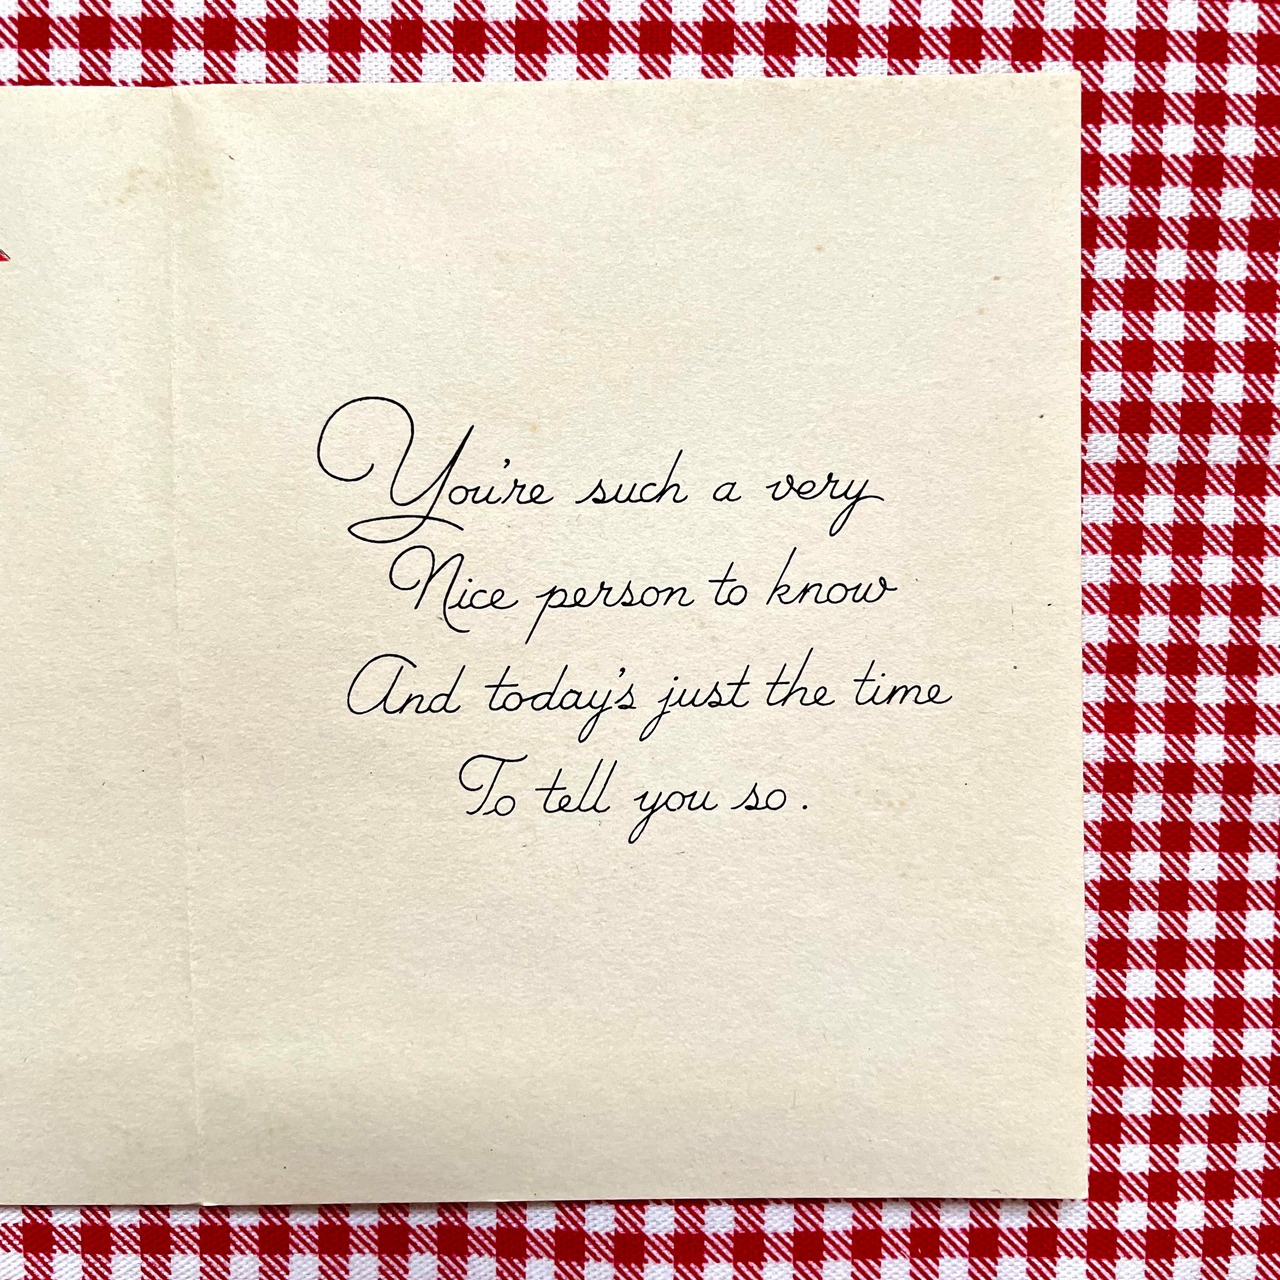 You're such a very
Nice person to know
And today's just the time
To tell you so.